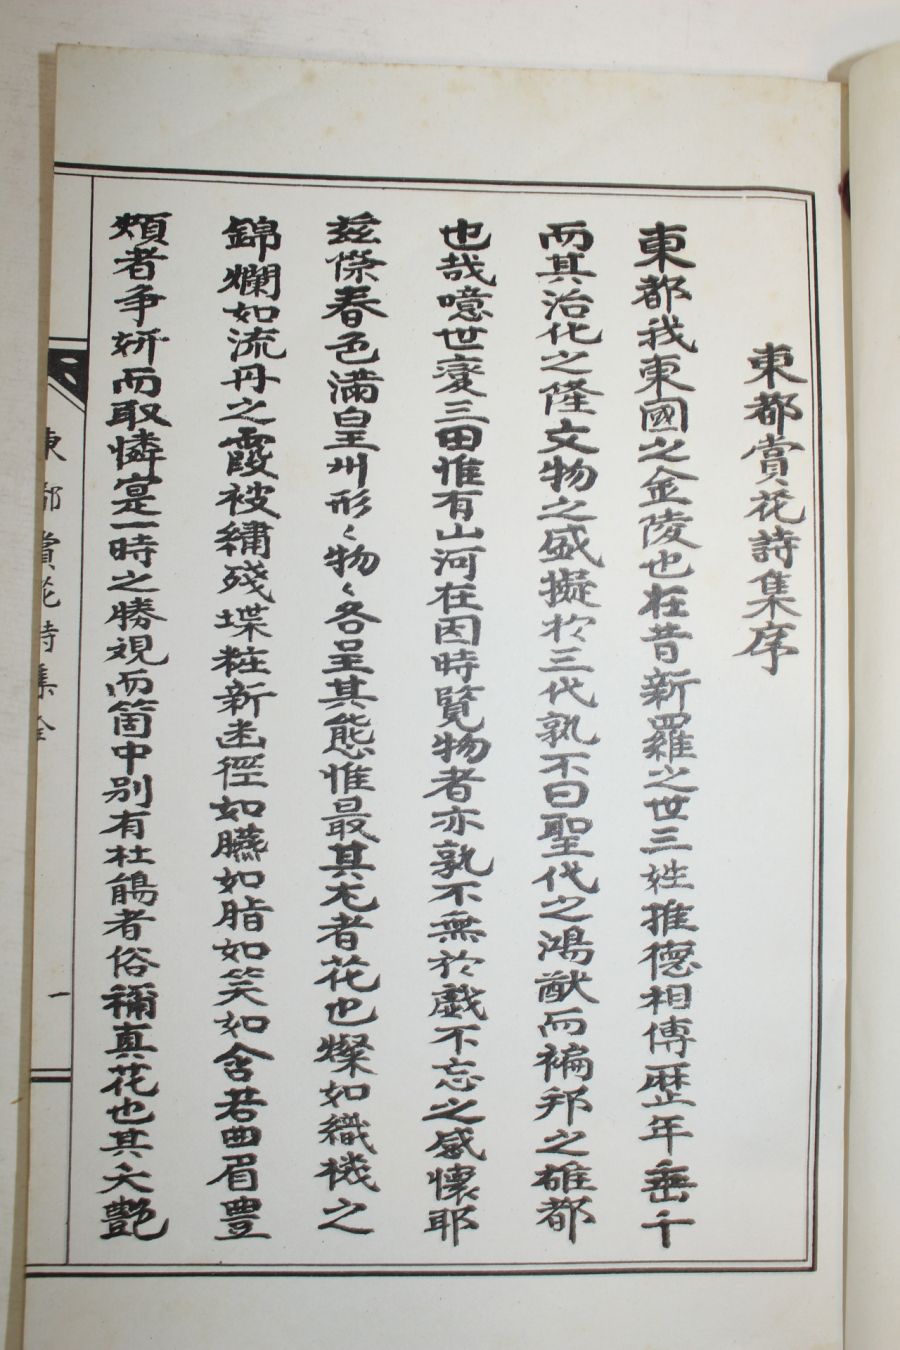 東都賞花詩集序
東都我東國之金陵也在昔新羅之世三姓推德相傳歷年垂千
而其治化之隆文物之盛擬於三代孰不曰聖代之鴻猷而褊邦之雄都
也哉噫世變三田惟有山河在因時覽物者亦孰不無於戲不忘之感懷耶
玆際春色滿皇州形〻物〻各呈其態惟最其尤者花也燦如織機之
錦爛如流丹之霞被繡殘堞粧新幽徑如臙如脂如笑如含若曲眉豊
頰者争姸而取憐寔一時之勝觀而箇中别有杜鵑者俗稱真花也其夭艶
東都賞花詩集全
一